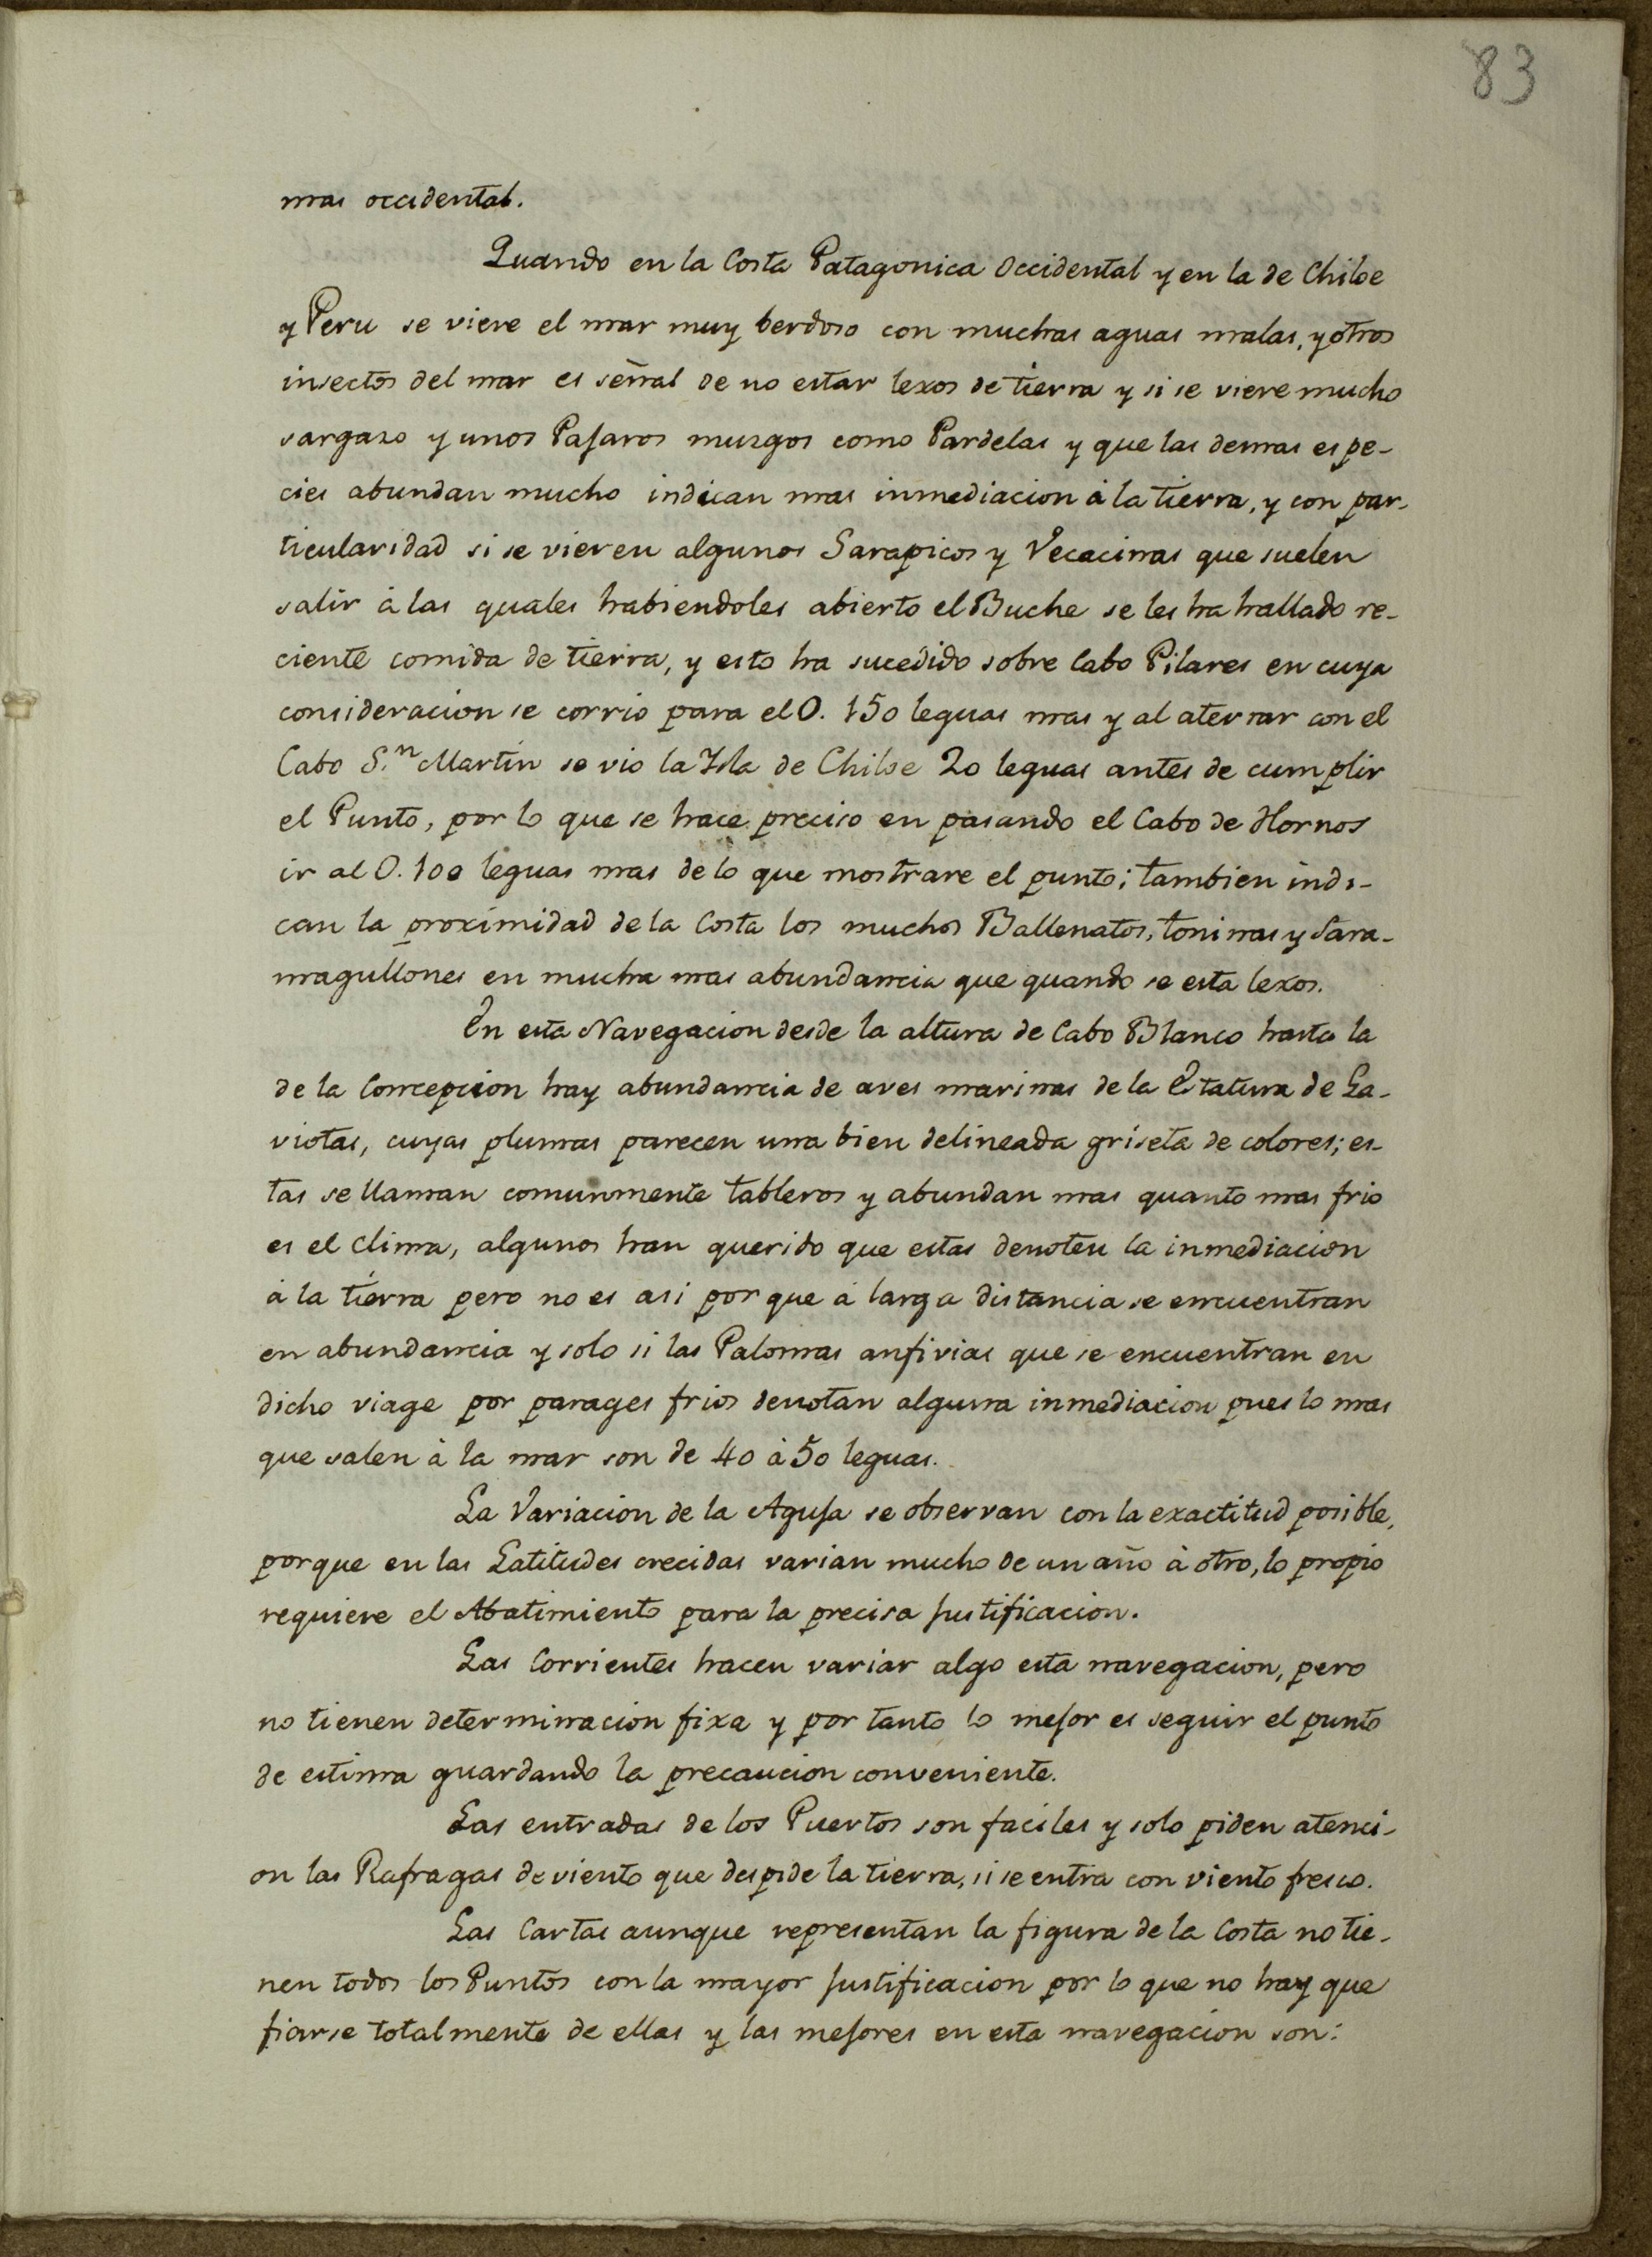 83
mas occidental.
Quando en la Costa Patagonica Occidental y en la de Chiloe
y Peru se viere el mar muy berdoso con muchas aguas malas, y otros
insectos del mar es señal de no estar lexos de tierra y si se viere mucho
sargaso y unos Pajaros musgos como Pardelas y que las demas espe-
cies abundan mucho indican mas inmediacion à la tierra, y con par-
ticularidad si se vieren algunos Sarapicos y Vecacinas que suelen
salir à las quales habiendoles abierto el Buche se les ha hallado re-
ciente comida de tierra, y esto ha sucedido sobre Cabo Pilares en cuya
consideracion se corrio para el O. 150 leguas mas y al aterrar con el
Cabo S.n Martin se vio la Isla de Chiloe 20 leguas antes de cumplir
el Punto, por lo que se hace preciso en pasando el Cabo de Hornos
ir al O. 100 leguas mas de lo que mostrare el punto; tambien indi-
can la proximidad de la Costa los muchos Ballenatos, toninas y Sara-
magullones en mucha mas abundancia que quando se esta lexos.
En esta Navegacion desde la altura de Cabo Blanco hasta la
de la Concepcion hay abundancia de aves marinas de la Estatura de Ga-
viotas, cuyas plumas parecen una bien delineada griseta de colores; es-
tas se llaman comunmente tableros y abundan mas quanto mas frio
es el clima, algunos han querido que estas denoten la inmediacion
à la tierra pero no es asi por que à larga distancia se encuentran
en abundancia y solo si las Palomas anfivias que se encuentran en
dicho viage por parages frios denotan alguna inmediacion pues lo mas
que salen à la mar son de 40 à 50 leguas.
La Variacion de la Aguja se observan con la exactitud posible,
porque en las Latitudes crecidas varian mucho de un año à otro, lo propio
requiere el Abatimiento para la precisa justificacion.
Las Corrientes hacen variar algo esta navegacion, pero
no tienen determinacion fixa y por tanto lo mejor es seguir el punto
de estima guardando la precaucion conveniente.
Las entradas de los Puertos son faciles y solo piden atenci-
on las Rafragas de viento que despide la tierra, si se entra con viento fresco.
Las Cartas aunque representan la figura de la Costa no tie-
nen todos los Puntos con la mayor justificacion por lo que no hay que
fiarse totalmente de ellas y las mejores en esta navegacion son: